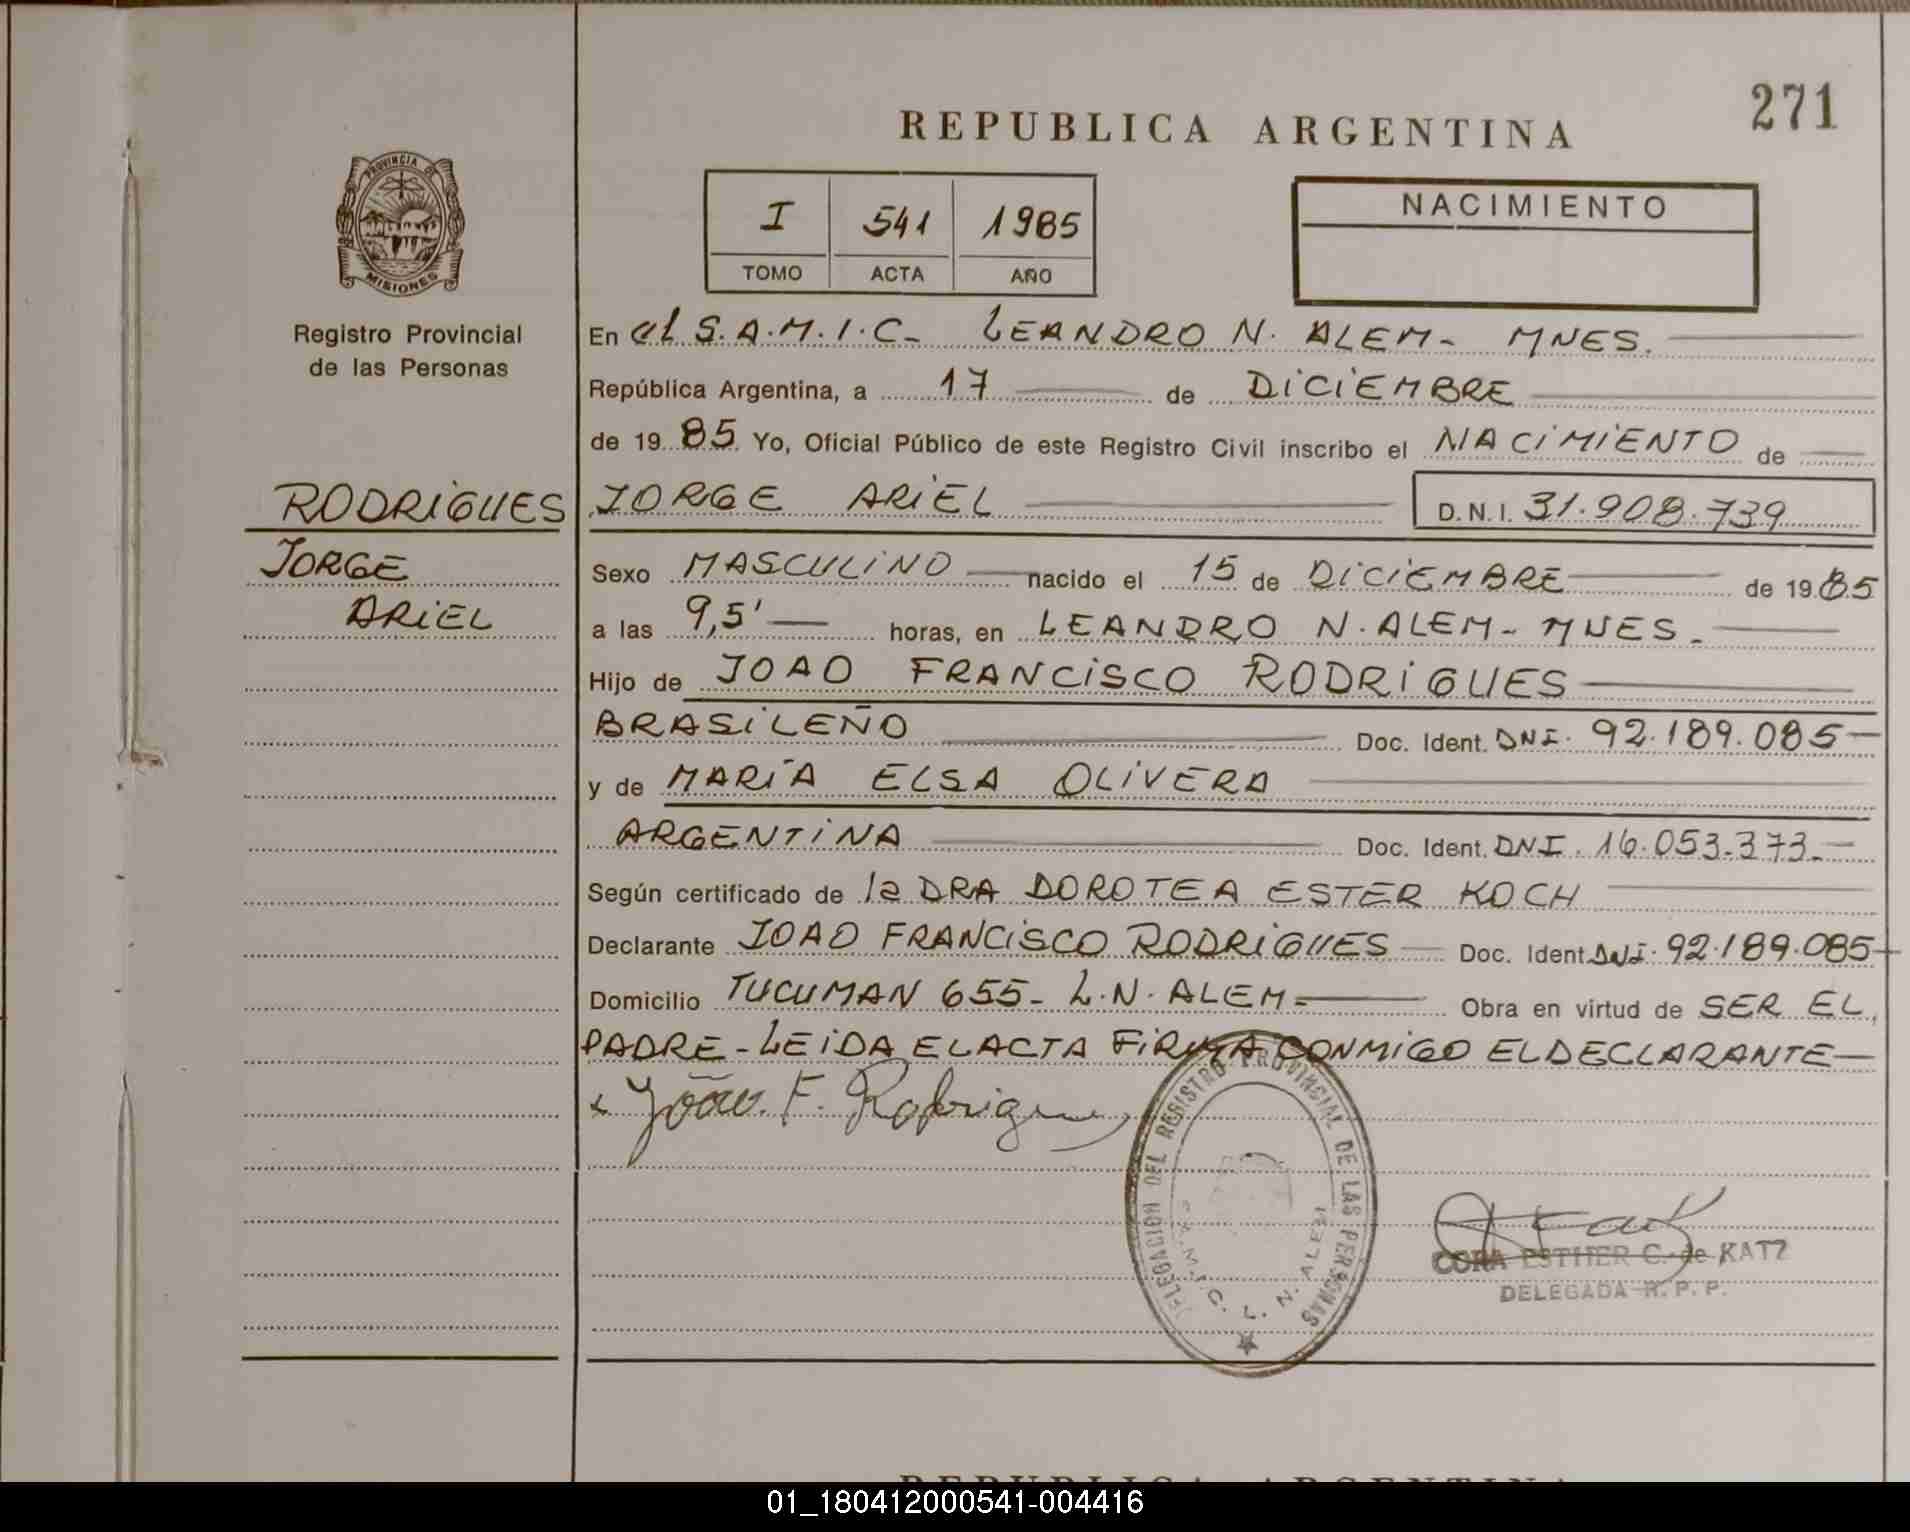 271
REPUBLICA ARGENTINA
PROVINCIA DE
MISIONES
Registro Provincial
de las Personas
I 541 1985
TOMO ACTA AÑO
NACIMIENTO
En el S.A.M.I.C. - LEANDRO N. ALEM - MNES.
República Argentina, a 17 de DICIEMBRE
de 1985. Yo, Oficial Público de este Registro Civil inscribo el NACIMIENTO de
RODRIGUES JORGE ARIEL D.N.I. 31.908.739
JORGE
ARIEL
Sexo MASCULINO nacido el 15 de DICIEMBRE de 1985
a las 9,5' horas, en LEANDRO N. ALEM - MNES.
Hijo de JOAO FRANCISCO RODRIGUES
BRASILEÑO Doc. Ident. DNI. 92.189.085
y de MARÍA ELSA OLIVERA
ARGENTINA Doc. Ident. DNI. 16.053.373.-
Según certificado de la DRA DOROTEA ESTER KOCH
Declarante JOAO FRANCISCO RODRIGUES Doc. Ident. DNI. 92.189.085
Domicilio TUCUMAN 655 - L.N. ALEM - Obra en virtud de SER EL
PADRE - LEIDA EL ACTA FIRMA CONMIGO EL DECLARANTE
x João. F. Rodrigues
DELEGACION DEL REGISTRO PROVINCIAL DE LAS PERSONAS
S.A.M.I.C. L. N. ALEM
CORA ESTHER C. de KATZ
DELEGADA R. P. P.
REPUBLICA ARGENTINA
01_180412000541-004416